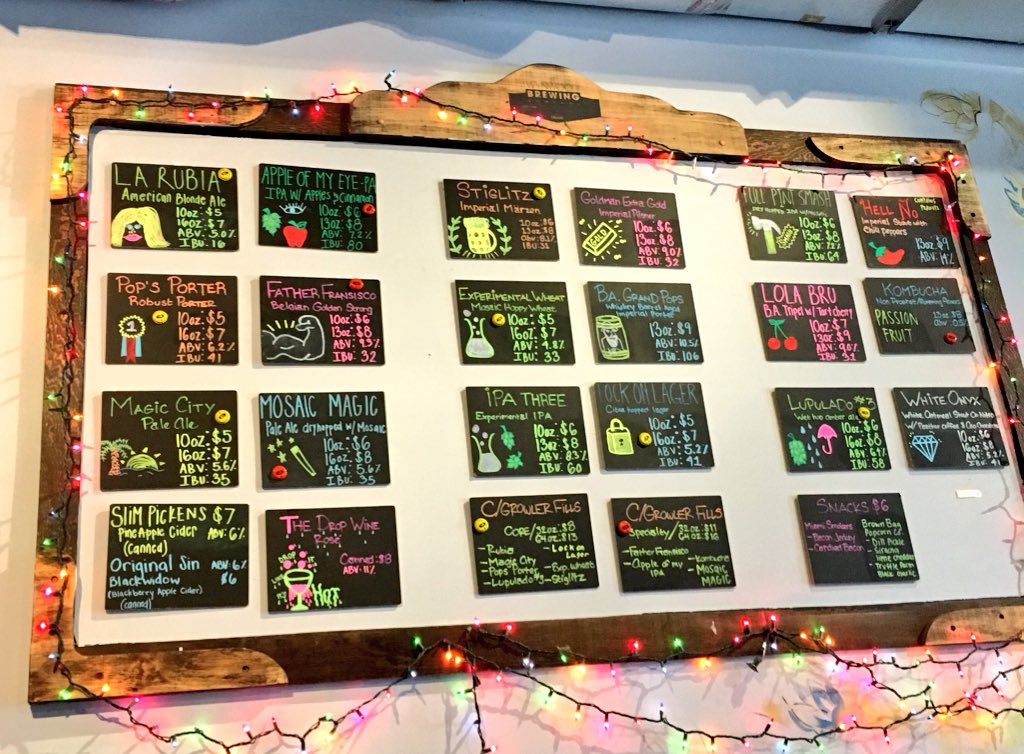 BREWING
LA RUBIA
American Blonde Ale
10oz $5
16oz $7
ABV: 5.0%
IBU: 16
APPLE OF MY EYE-PA
IPA w/ Apples & cinnamon
10oz $6
13oz $8
ABV: 7.2%
IBU: 80
STIGLITZ
Imperial Märzen
10oz $6
13oz $8
ABV: 8.1%
IBU: 31
Goldman Extra Gold
Imperial Pilsner
GOLD
10oz $6
13oz $8
ABV: 9.0%
IBU: 32
FULL PINT SMASH
10oz $6
16oz $8
ABV: 7.2%
IBU: 64
HELL NO
CONTAINS PEANUTS
Imperial Stout with
Chili peppers
13oz $9
ABV: 14%
POP'S PORTER
Robust PORTER
1
10oz $5
16oz $7
ABV: 6.2%
IBU: 41
FATHER FRANSISCO
Belgian Golden Strong
10oz: $6
13oz: $8
ABV: 9.3%
IBU: 32
EXPERIMENTAL WHEAT
Mosaic Hoppy Wheat
10oz $5
16oz $7
ABV: 4.8%
IBU: 33
B.A. GRAND POPS
Whiskey Barrel Aged
Imperial Porter
13oz $9
ABV: 10.5%
IBU: 106
LOLA BRU
BA Tripel w/ Tart cherry
10oz $7
13oz $9
ABV: 9.0%
IBU: 31
KOMBUCHA
PASSION
FRUIT
13oz $8
MAGIC CITY
Pale Ale
10oz: $5
16oz: $7
ABV: 5.6%
IBU: 35
MOSAIC MAGIC
Pale Ale dryhopped w/ Mosaic
10oz: $6
16oz: $8
ABV: 5.6%
IBU: 35
IPA THREE
Experimental IPA
10oz $6
13oz $8
ABV: 8.3%
IBU: 60
LOCK ON LAGER
Citrus hopped lager
10oz $5
16oz $7
ABV: 5.2%
IBU: 41
LUPULADO #3
Wet hop amber ale
10oz $6
16oz $8
ABV: 6.4%
IBU: 58
WHITE ONYX
White Oatmeal Stout On Nitro
w/ Panther coffee &
10oz $6
16oz $8
ABV: 5.2%
IBU: 41
SLIM PICKENS $7
PineApple Cider ABV: 6%
(canned)
Original Sin ABV: 6%
BLACKWIDOW $6
(Blackberry Apple Cider)
(canned)
THE DROP WINE
Rosé
DROP IT
HOT
Canned: $8
ABV: 11%
C/GROWLER FILLS
CORE/32oz $8
64oz $13
-Rubia
-Magic City
-Pops Porter
-Lupulado #3
-Lock on
Lager
-Exp. Wheat
-Stiglitz
C/GROWLER FILLS
Speciality/32oz $11
64oz $18
-Father Fransisco
-Apple of my
IPA
-MOSAIC
MAGIC
SNACKS $6
-Bacon Jerky
-Candied Bacon
Brown Bag
Popcorn Co.
-Dill Pickle
-Sriracha